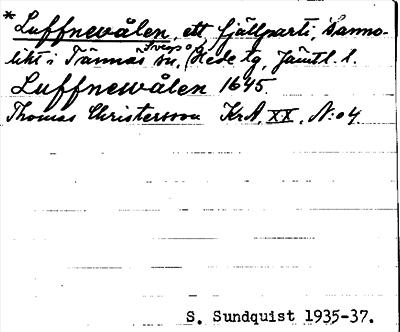 *Luffnewålen, ett fjällparti, sanno-
likt i Tännäs sn, Hede tg, Jämtl. l.
Luffnewålen 1645.
Thomas Christersson KrA, XX, N:o 4.
S. Sundquist 1935-37.